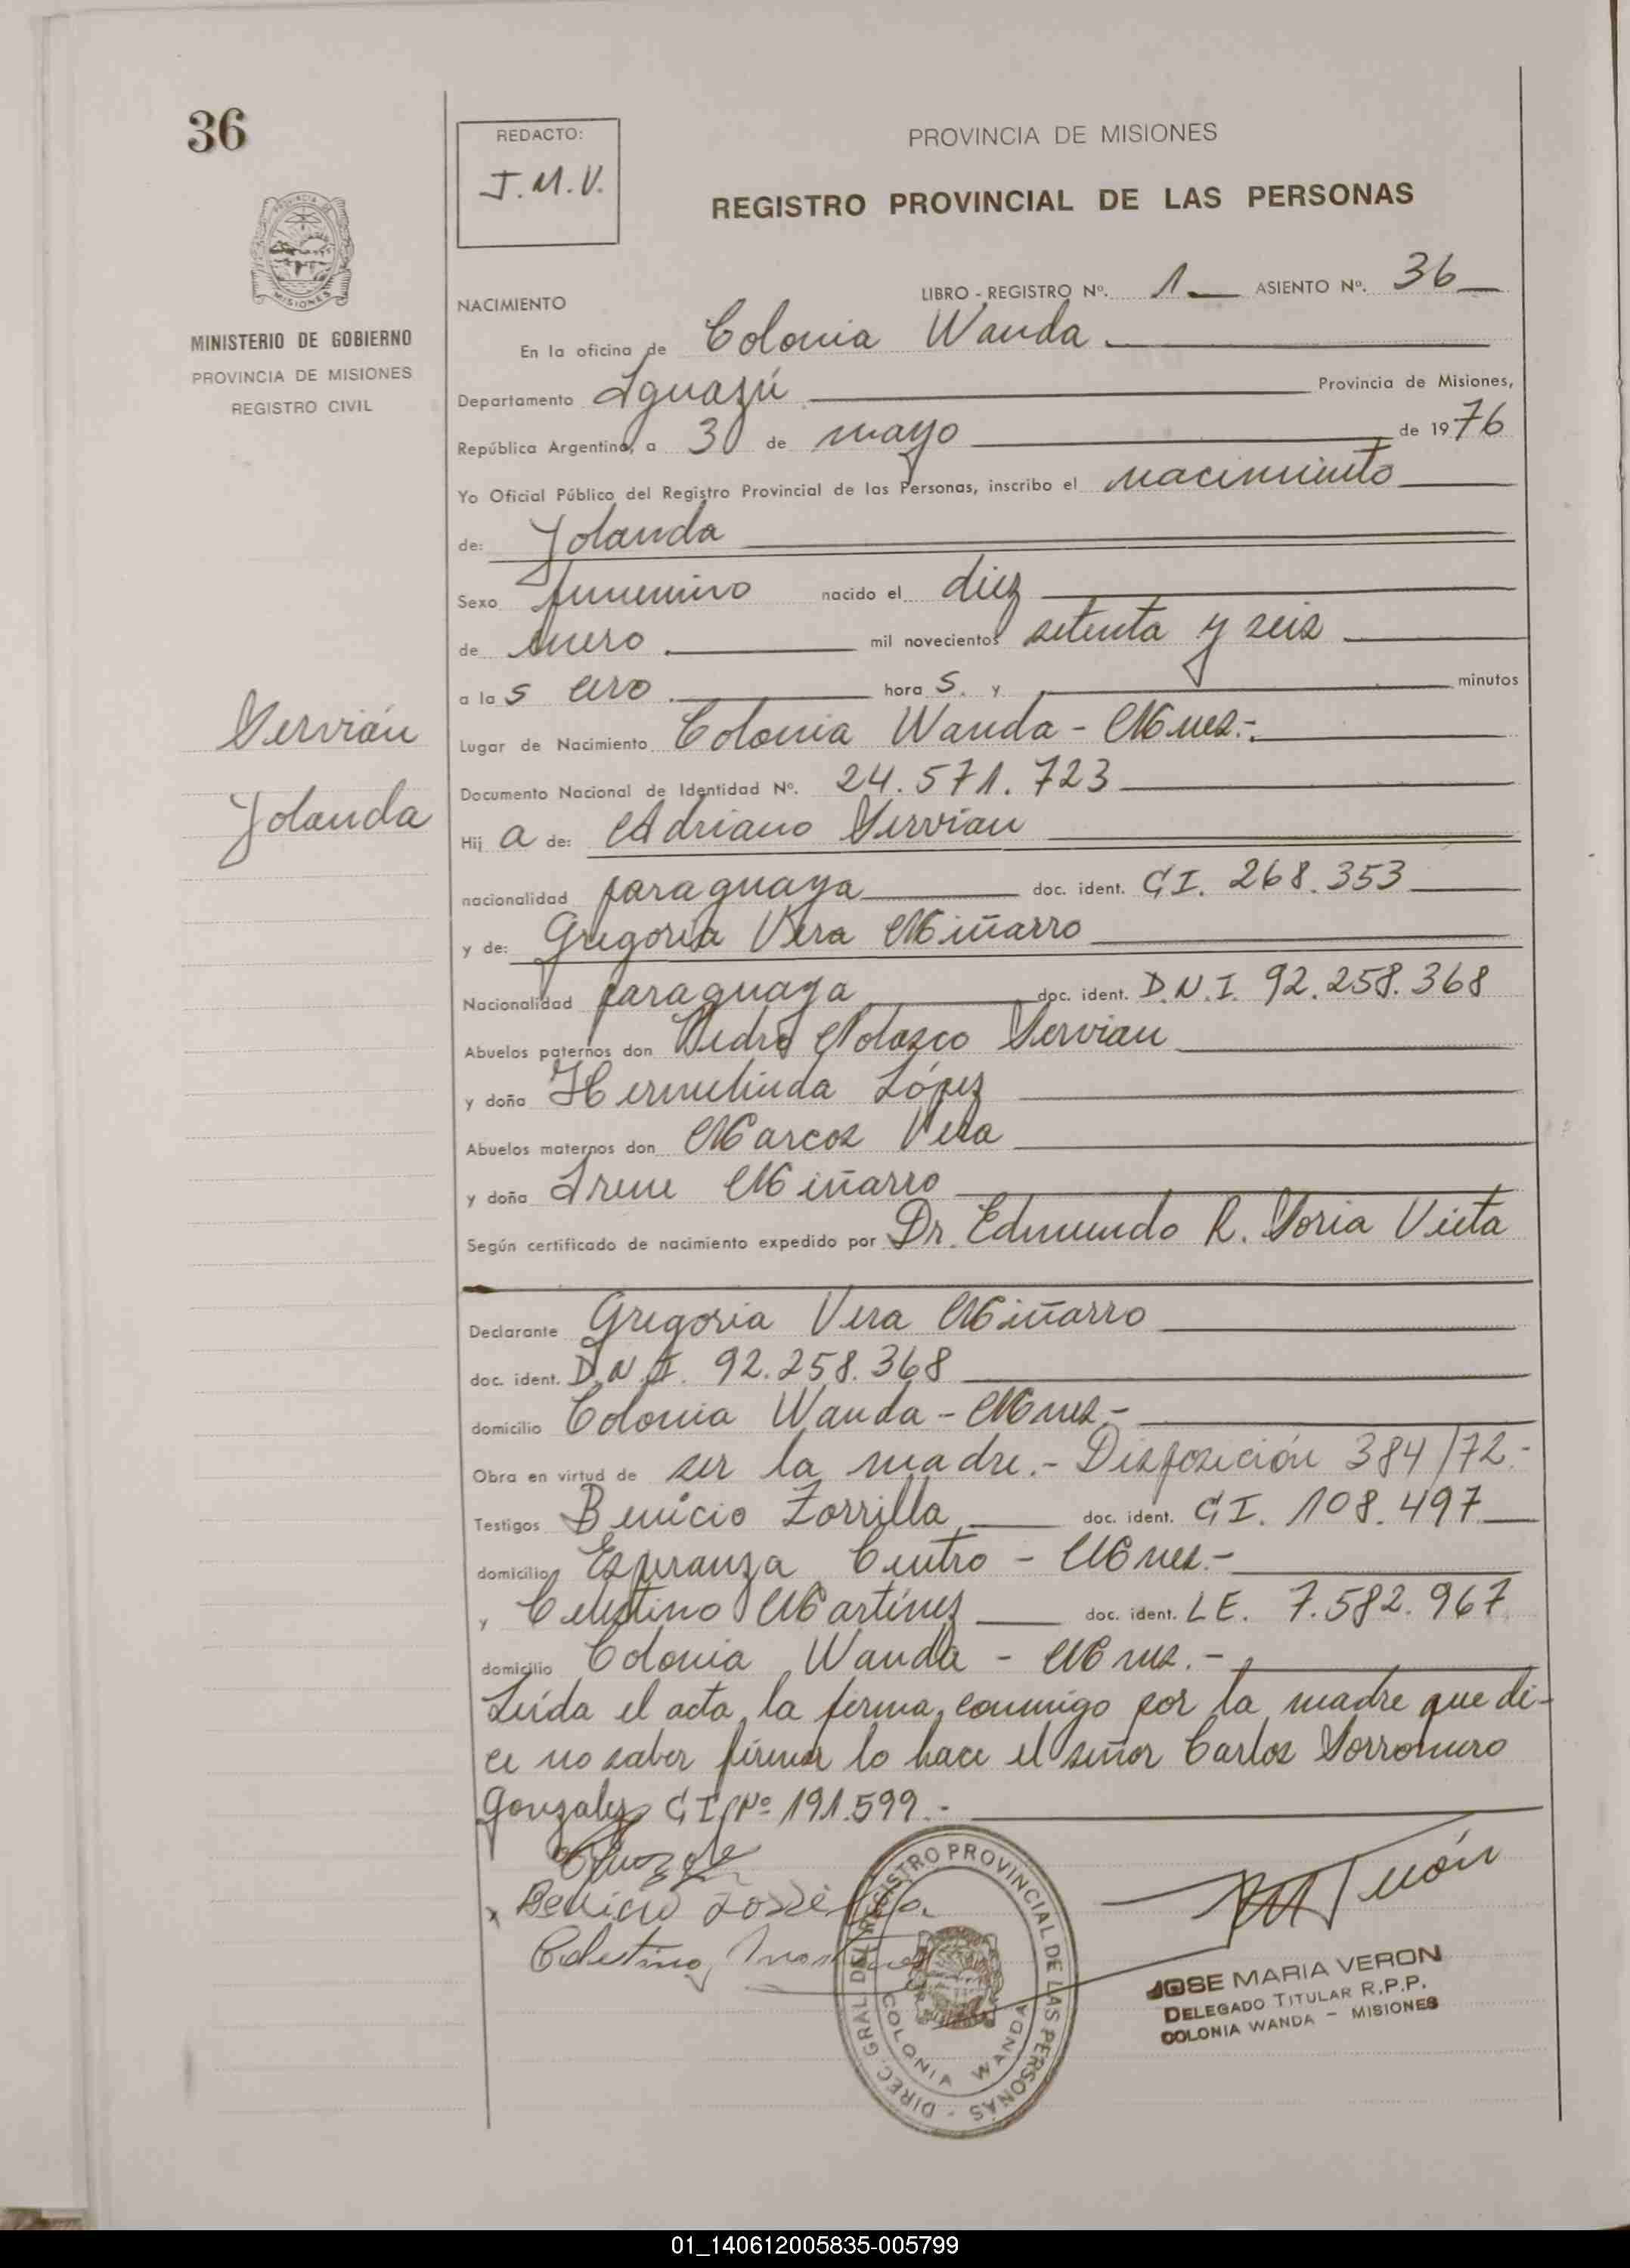 36
REDACTO:
J.M.V.
PROVINCIA DE MISIONES
REGISTRO PROVINCIAL DE LAS PERSONAS
MISIONES
MINISTERIO DE GOBIERNO
PROVINCIA DE MISIONES
REGISTRO CIVIL
NACIMIENTO
LIBRO - REGISTRO Nº. 1 ASIENTO Nº. 36
En la oficina de Colonia Wanda.
Departamento Iguazú Provincia de Misiones,
República Argentina, a 30 de mayo de 1976
Yo Oficial Público del Registro Provincial de las Personas, inscribo el nacimiento
de: Yolanda
Sexo femenino nacido el diez
de enero mil novecientos setenta y seis
a las cero hora s. y minutos
Servián
Yolanda
Lugar de Nacimiento Colonia Wanda - Mnes.-
Documento Nacional de Identidad Nº. 24.571.723
Hij a de: Adriano Servian
nacionalidad paraguaya doc. ident. C.I. 268.353
y de: Gregoria Vera Miñarro
Nacionalidad paraguaya doc. ident. D.N.I. 92.258.368
Abuelos paternos don Pedro Nolazco Servian
y doña Hermelinda López
Abuelos maternos don Marcos Vera
y doña Irene Miñarro
Según certificado de nacimiento expedido por Dr. Edmundo R. Soria Vieta
Declarante Gregoria Vera Miñarro
doc. ident. D.N.I. 92.258.368
domicilio Colonia Wanda - Mnes.-
Obra en virtud de ser la madre.- Disposición 384/72.-
Testigos Benicio Zorrilla doc. ident. C.I. 108.497
domicilio Esperanza Centro - Mnes.-
y Celestino Martínez doc. ident. L.E. 7.582.967
domicilio Colonia Wanda - Mnes.-
Leída el acta, la firma conmigo por la madre que di-
ce no saber firmar lo hace el señor Carlos Sorromero
Gonzalez C.I. Nº 191.599.-
x Benicio Zorrilla.
Celestino Martinez
DIREC. GRAL. DEL REGISTRO PROVINCIAL DE LAS PERSONAS -
COLONIA WANDA
JOSE MARIA VERON
DELEGADO TITULAR R.P.P.
COLONIA WANDA - MISIONES
01_140612005835-005799